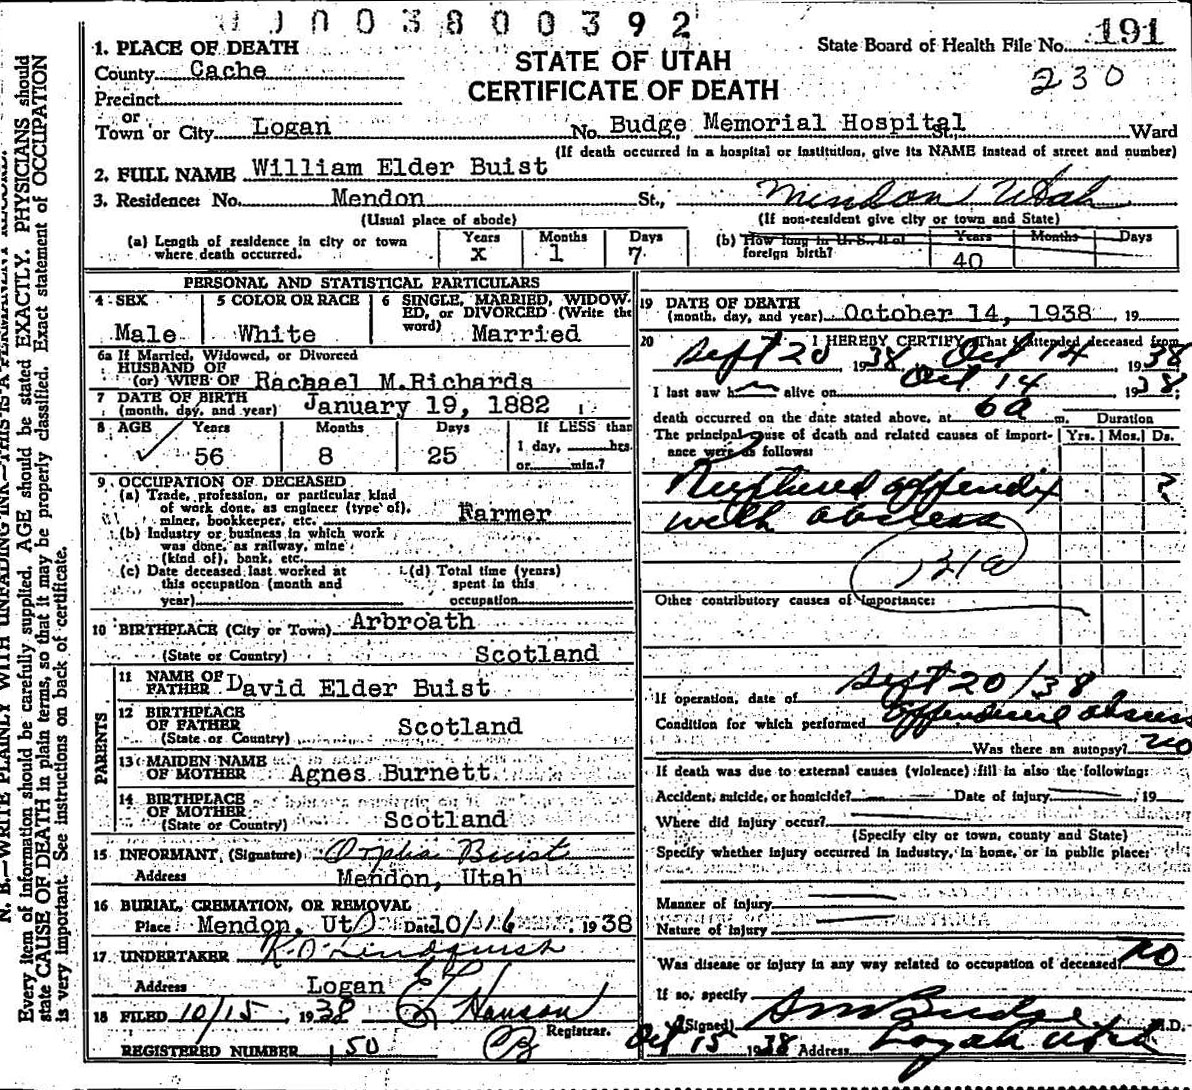 0003800392
1. PLACE OF DEATH
STATE OF UTAH
CERTIFICATE OF DEATH
State Board of Health File No. 191
230
County Cache
Precinct
or
Town or City Logan No. Budge Memorial Hospital St. Ward
(If death occurred in a hospital or institution, give its NAME instead of street and number)
2. FULL NAME William Elder Buist
3. Residence: No. Mendon St., Mendon Utah
(Usual place of abode) (If non-resident give city or town and State)
(a) Length of residence in city or town where death occurred. Years x Months 1 Days 7
(b) How long in U. S., if of foreign birth? Years 40 Months Days
PERSONAL AND STATISTICAL PARTICULARS
4 SEX Male
5 COLOR OR RACE White
6 SINGLE, MARRIED, WIDOWED, or DIVORCED (Write the word) Married
6a If Married, Widowed, or Divorced
HUSBAND OF
(or) WIFE OF Rachael M.Richards
7 DATE OF BIRTH
(month, day, and year) January 19, 1882
8 AGE Years 56 Months 8 Days 25 If LESS than 1 day, hrs. or min.?
9 OCCUPATION OF DECEASED
(a) Trade, profession, or particular kind
of work done, as engineer (type of),
miner, bookkeeper, etc. Farmer
(b) Industry or business in which work
was done, as railway, mine
(kind of), bank, etc.
(c) Date deceased last worked at
this occupation (month and
year)
(d) Total time (years)
spent in this
occupation
10 BIRTHPLACE (City or Town) Arbroath
(State or Country) Scotland
PARENTS
11 NAME OF FATHER David Elder Buist
12 BIRTHPLACE
OF FATHER Scotland
(State or Country)
13 MAIDEN NAME
OF MOTHER Agnes Burnett
14 BIRTHPLACE
OF MOTHER
(State or Country) Scotland
15 INFORMANT, (Signature) Orpha Buist
Address Mendon, Utah
16 BURIAL, CREMATION, OR REMOVAL
Place Mendon, Ut Date 10/16 1938
17 UNDERTAKER Lindquist
Address Logan
18 FILED 10/15, 1938 Hanson
Registrar.
REGISTERED NUMBER 150
19 DATE OF DEATH
(month, day, and year) October 14, 1938 19
20 I HEREBY CERTIFY, That I attended deceased from
Sept 20 1938 Oct 14 1938
I last saw h alive on Oct 14 1938;
death occurred on the date stated above, at 6a m.
Duration
The principal cause of death and related causes of importance were as follows:
Yrs. Mos. Ds.
Ruptured appendix ?
with abscess
121a
Other contributory causes of importance:
If operation, date of Sept 20/38
Condition for which performed Appendiceal abscess
Was there an autopsy? no
If death was due to external causes (violence) fill in also the following:
Accident, suicide, or homicide? Date of injury , 19
Where did injury occur?
(Specify city or town, county and State)
Specify whether injury occurred in industry, in home, or in public place:
Manner of injury
Nature of injury
Was disease or injury in any way related to occupation of deceased? no
If so, specify
(Signed) Budge M.D.
Oct 15 1938 Address Logan Utah
N. B.—WRITE PLAINLY WITH UNFADING INK—THIS IS A PERMANENT RECORD.
Every item of information should be carefully supplied. AGE should be stated EXACTLY. PHYSICIANS should
state CAUSE OF DEATH in plain terms, so that it may be properly classified. Exact statement of OCCUPATION
is very important. See instructions on back of certificate.